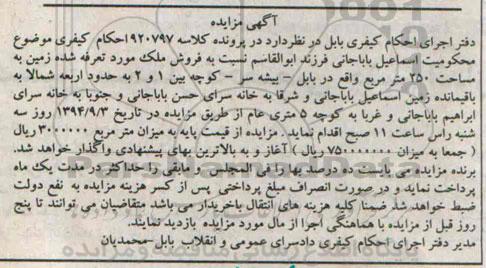 آگهی مزایده
دفتر اجرای احکام کیفری بابل در نظردارد در پرونده کلاسه ۹۲۰۷۹۷احکام کیفری موضوع
محکومیت اسماعیل باباجانی فرزند ابوالقاسم نسبت به فروش ملک مورد تعرفه شده زمین به
مساحت ۲۵۰ متر مربع واقع در بابل - بیشه سر - کوچه بین ۱ و ۲ به حدود اربعه شمالا به
باقیمانده زمین اسماعیل باباجانی و شرقا به خانه سرای حسن باباجانی و جنوبا به خانه سرای
ابراهیم باباجانی و غربا به کوچه ۵ متری عام از طریق مزایده در تاریخ ۱۳۹۴/۹/۳ روز سه
شنبه راس ساعت ۱۱ صبح اقدام نماید . مزایده از قیمت پایه به میزان متر مربع ۳۰۰۰۰۰۰ریال
( جمعا به میزان ۷۵۰۰۰۰۰۰۰ ریال ) آغاز و به بالاترین بهای پیشنهادی واگذار خواهد شد.
برنده مزایده می بایست ده درصد بها را فی المجلس و مابقی را حداکثر در مدت یک ماه
پرداخت نماید و در صورت انصراف مبلغ پرداختی پس از کسر هزینه مزایده به نفع دولت
ضبط خواهد شد ضمنا کلیه هزینه های انتقال باخریدار می باشد متقاضیان می توانند تا پنج
روز قبل از مزایده با هماهنگی اجرا از مال مورد مزایده بازدید نمایند.
مدیر دفتر اجرای احکام کیفری دادسرای عمومی و انقلاب بابل-محمدیان
پایگاه اطلاع رسانی مناقصه و مزایده